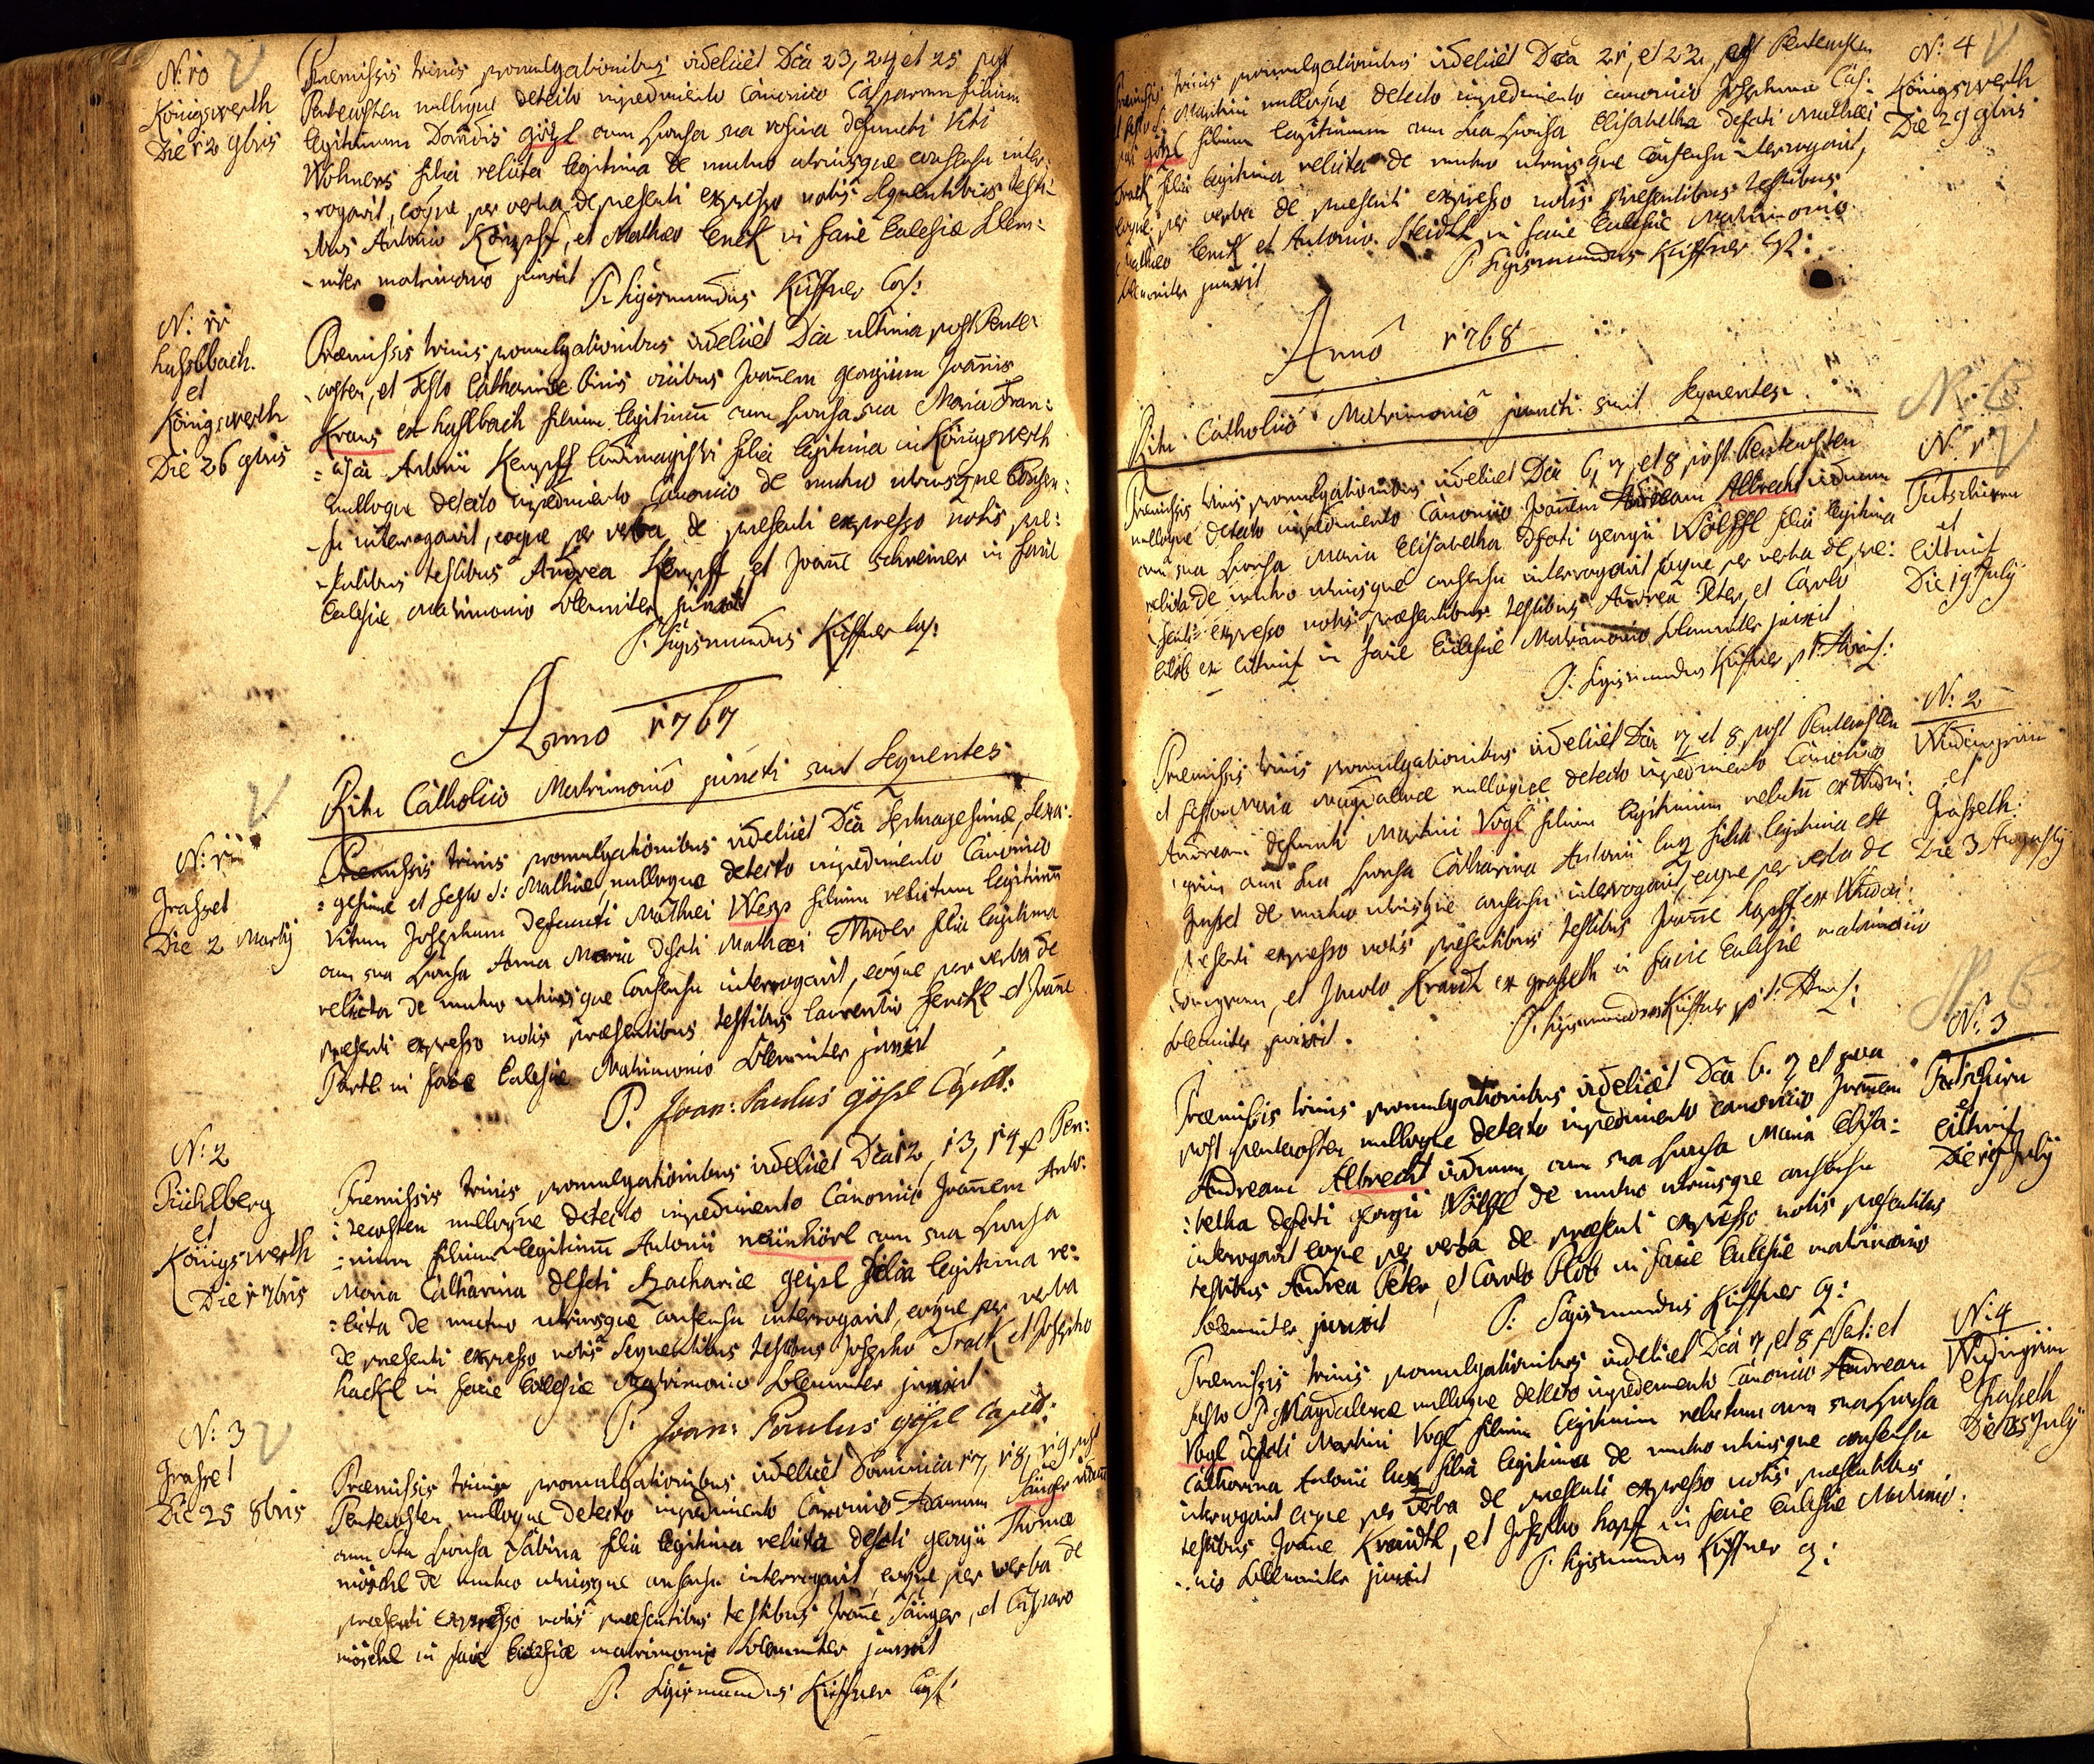 N: 10
Königswerth
Die 12 9bris
Praemissis trinis promulgationibus videlicet Dca 23, 24 et 25 post
Pentecosten nulloque detecto impedimento Canonico Casparum filium
legitimum Davidis götzl cum sponsa sua rosina defuncti Viti
Wöhners filia relicta legitima de mutuo utriusque consensu inter-
-rogavit, eoque per verba de praesenti expresso notis sequentibus testi-
-bus Antonio Kömpff, et Mathaeo Cenck in facie Ecclesiae solem-
-niter matrimonio junxit
P: Sigismundus Küffner Cap:
N: 11
haslbach.
et
Königswerth
Die 26 9bris
Praemissis trinis promulgationibus videlicet Dca ultima post Pente-
-costen, et Festo Catharinae binis vicibus Joannem georgium Joannis
Kraus ex haslbach filium legitimum cum sponsa sua Maria Fran:
:cisca Antonii Kempff ludimagistri filia legitima in Königswerth
nulloque detecto impedimento Canonico de mutuo utriusque Consen:
-su interrogavit, eoque per verba de praesenti expresso notis prae:
-sentibus testibus Andrea Kempff et Joanne schreiner in facie
Ecclesiae Matrimonio solemniter junxit
P: Sigismundus Küffner Cap:
Anno 1767
Ritu Catholico Matrimonio juncti sunt Sequentes
N: 1
Grasset
Die 2 Martij
Praemissis trinis promulgationibus videlicet Dca Septuagesimae, sexa:
:gesimae et festo S: Mathiae, nulloque detecto impedimento Canonico
Vitum Josephum defuncti Mathaei Wesp filium relictum legitimum
cum sua sponsa Anna Maria defcti Mathaei Mader filia legitima
relicta de mutuo utriusque Consensu interrogavit, eoque per verba de
praesenti expresso notis praesentibus testibus laurentio henckl et Joanne
Partl in facie Ecclesiae Matrimonio solemniter junxit
P. Joan: Paulus gößl Capell:
N: 2
Püchlberg
et
Königswerth
Die 1 7bris
Praemissis trinis promulgationibus videlicet Dca 12, 13, 14 p Pen:
:tecosten nulloque detecto impedimento Canonico Joannem Anto:
:nium filium legitimum Antonii neünhörl cum sua sponsa
Maria Catharina defcti Zachariae geipl filia legitima re:
:licta de mutuo utriusque consensu interrogavit, eoque per verba
de praesenti expresso notis sequentibus testibus Josepho Track et Josepho
hackl in facie Ecclesiae Matrimonio solemniter junxit
P. Joan: Paulus gößl Capell:
N: 3
Grasset
Die 25 8bris
Praemissis trinis promulgationibus videlicet Dominica 17, 18, 19 post
Pentecosten nulloque detecto impedimento Canonico Adamum Sänger viduum
cum sua sponsa Sabina filia legitima relicta defcti georgii Thomae
möschl de mutuo utriusque consensu interrogavit, eoque per verba de
praesenti expresso notis praesentibus testibus Joanne Sänger, et Casparo
möschl in facie Ecclesiae matrimonio solemniter junxit
P. Sigismundus Küffner Cap:
N: 4
Königswerth
Die 29 9bris
Praemissis trinis promulgationibus videlicet Dca 21, et 22, post Pentecosten
et festo S: Martini nulloque detecto impedimento canonico Josephum Cas:
götzl filium legitimum cum sua sponsa Elisabetha defcti Mathaei
Track filia legitima relicta de mutuo utriusque Consensu interrogavit,
eoque per verba de praesenti expresso notis praesentibus testibus
Mathaeo Cenck et Antonio Steidl in facie Ecclesiae Matrimonio
solemniter junxit
P: Sigismundus Küffner Cap:
Anno 1768
Ritu Catholico Matrimonio juncti sunt Sequentes
N. 6
N: 1
Putschirn
et
Elltnit
Die 19 July
Praemissis trinis promulgationibus videlicet Dca 6, 7, et 8 post Pentecosten
nulloque detecto impedimento Canonico Joannem Andream Albrecht viduum
cum sua sponsa Maria Elisabetha defcti georgii Wölffl filia legitima
relicta de mutuo utriusque consensu interrogavit eoque per verba de prae:
senti expresso notis praesentibus testibus Andrea Peter, et Carolo
in facie Ecclesiae Matrimonio solemniter junxit
P: Sigismundus Küffner p t:
N: 2
Wudingrün
et
Grasseth.
Die 3 Augusty
Praemissis trinis promulgationibus videlicet Dca 7 et 8 post Pentecosten
et Festo Maria Magdalenae nulloque detecto impedimento Canonico
Andream defuncti Martini Vogl filium legitimum relictum ex Wudin:
grün cum sua sponsa Catharina Antonii lux filia legitima ex
Grasset de mutuo utriusque consensu interrogavit, eoque per verba de
praesenti expresso notis praesentibus testibus Joanne hapff ex Wudin:
, et Jacobo Kraudl ex grasseth in facie Ecclesiae matrimonio
solemniter junxit.
P: Sigismundus Küffner p: t:
N. 6.
N: 3
Putschirn
et
Elltnit
Die 19 July
Praemissis trinis promulgationibus videlicet Dca 6. 7 et 8va
post pentecosten nulloque detecto impedimento canonico Joannem
Andream Albrecht viduum, cum sua sponsa Maria Elisa:
:betha defcti georgii Wölffl de mutuo utriusque consensu
interrogavit eoque per verba de praesenti expresso notis praesentibus
testibus Andrea Peter, et Carolo in facie Ecclesiae matrimonio
solemniter junxit
P: Sigismundus Küffner Cap:
N: 4
Wudingrün
et
Grasseth
Die 25 July
Praemissis trinis promulgationibus videlicet Dca 7, et 8 p Pent: et
festo S Magdalenae nulloque detecto impedemento Canonico Andream
Vogl defcti Martini Vogl filium legitimum relictum cum sua sponsa
Catharina Antonii lux filia legitima de mutuo utriusque consensu
interrogavit eoque per verba de praesenti expresso notis praesentibus
testibus Joane Kraudl, et Josepho hapff in facie Ecclesiae Matrimo:
..nio solemniter junxit
P. Sigismundus Küffner Cap: